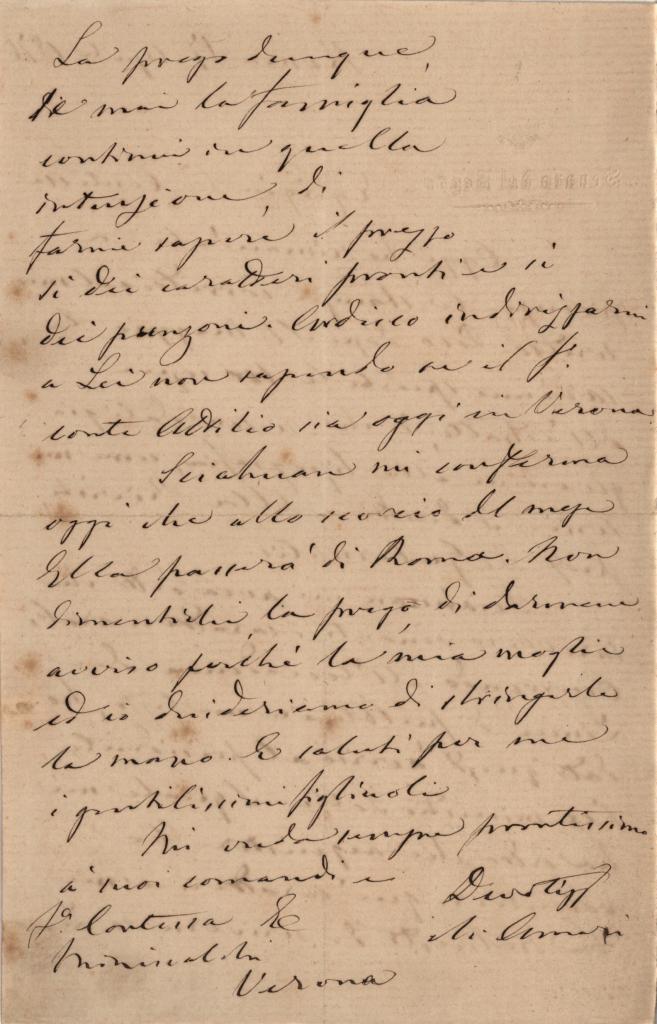 La prego dunque,
se mai la famiglia
continui in quella
intenzione, di
farmi sapere il prezzo
sì dei caratteri pronti e sì
dei punzoni. Ardisco indirizzarmi
a Lei non sapendo se il S.
conte Attilio sia oggi in Verona.
Sciahuan mi conferma
oggi che allo scorcio del mese
Ella passerà di Roma. Non
dimentichi, la prego, di darmene
avviso poiché la mia moglie
ed io desideriamo di stringerle
la mano. E saluti per me
i gentilissimi figliuoli
Mi creda sempre prontissimo
a' suoi comandi e
Devotiss
S.a Contessa E
di Amari
Miniscalchi
Verona
Senato del Regno